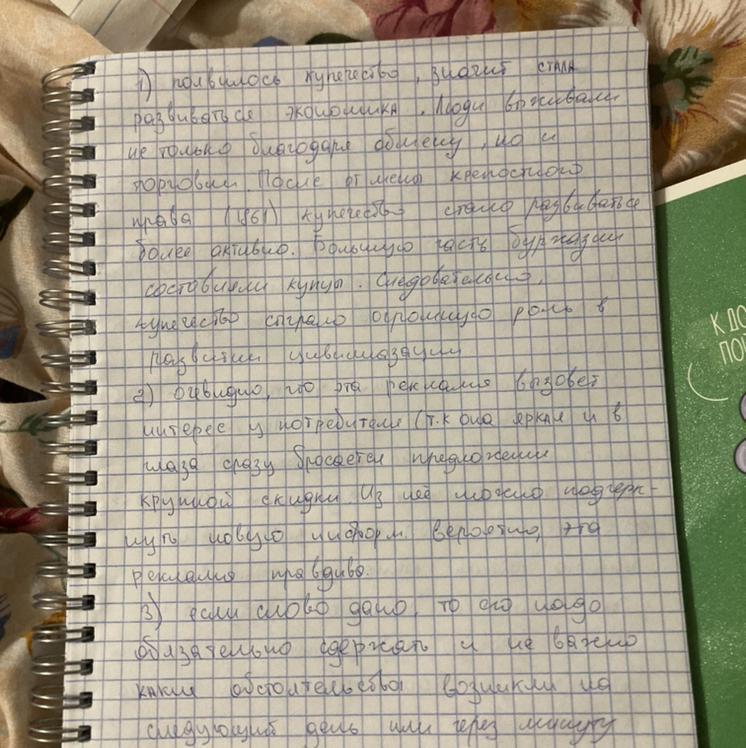 1) появилось купечество, значит стала
развиваться экономика. Люди выживали
не только благодаря обмену, но и
торговли. После отмены крепостного
права (1861) купечество стало развиваться
более активно. Большую часть буржазии
составляли купцы. Следовательно,
купечество сыграло огромную роль в
развитии цивилизации
2) очевидно, что эта реклама вызовет
интерес у потребителя (т.к она яркая и в
глаза сразу бросается предложение
крупной скидки Из неё можно подчерк-
нуть новую информ. вероятно, эта
реклама правдива.
3) если слово дано, то его надо
обязательно сдержать и не важно
какие обстоятельства возникли на
следующий день или через минуту
К ДО
ПО